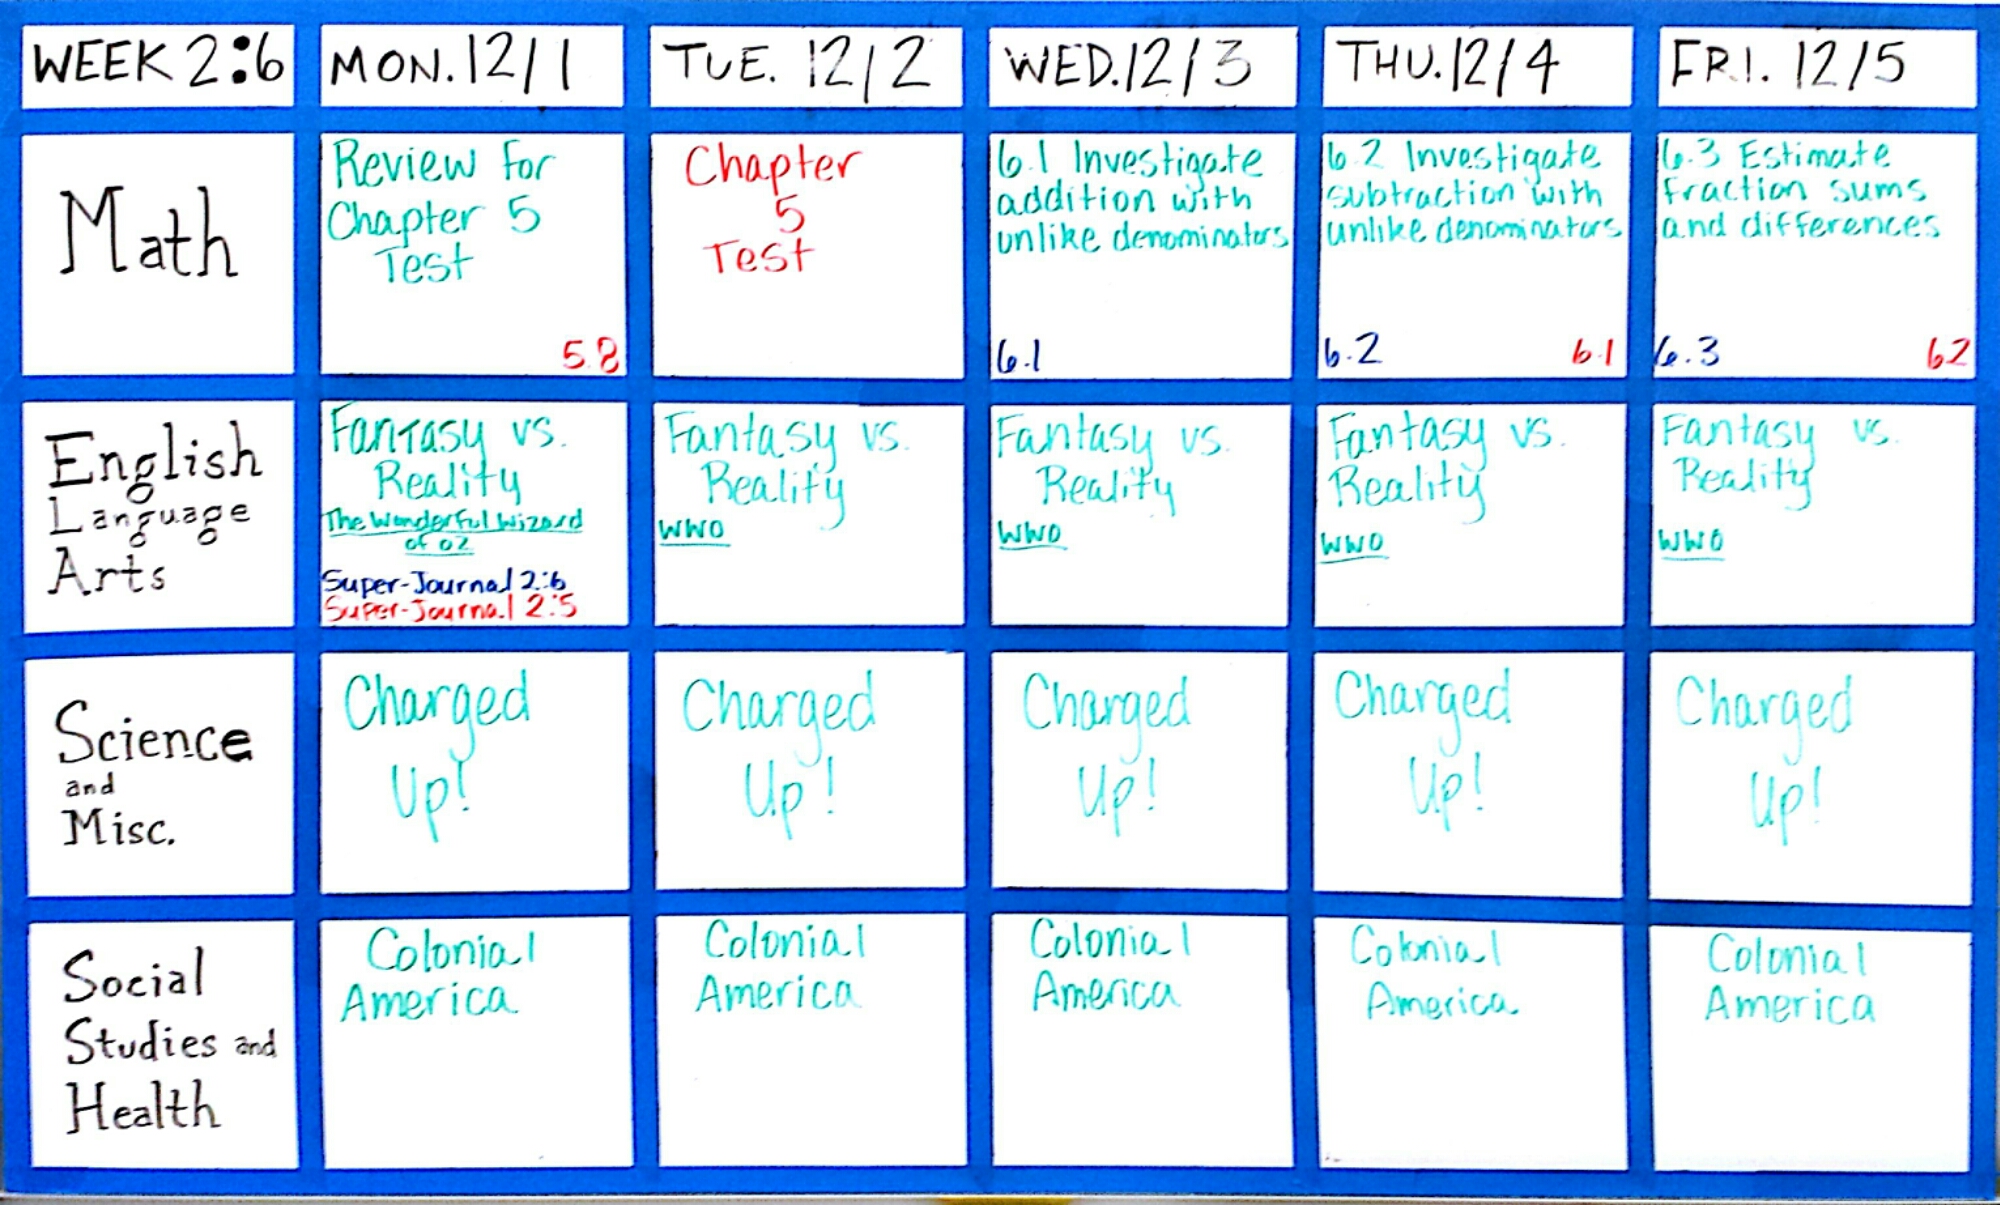 WEEK 2:6
MON. 12/1
TUE. 12/2
WED. 12/3
THU. 12/4
FRI. 12/5
Math
Review for
Chapter 5
Test
5.8
Chapter
5
Test
6.1 Investigate
addition with
unlike denominators
6.1
6.2 Investigate
subtraction with
unlike denominators
6.2
6.1
6.3 Estimate
fraction sums
and differences
6.3
6.2
English
Language
Arts
Fantasy vs.
Reality
The Wonderful Wizard
of OZ
Super-Journal 2:6
Super-Journal 2:5
Fantasy vs.
Reality
WWO
Fantasy vs.
Reality
WWO
Fantasy vs.
Reality
WWO
Fantasy vs.
Reality
WWO
Science
and
Misc.
Charged
Up!
Charged
Up!
Charged
Up!
Charged
Up!
Charged
Up!
Social
Studies and
Health
Colonial
America
Colonial
America
Colonial
America
Colonial
America
Colonial
America